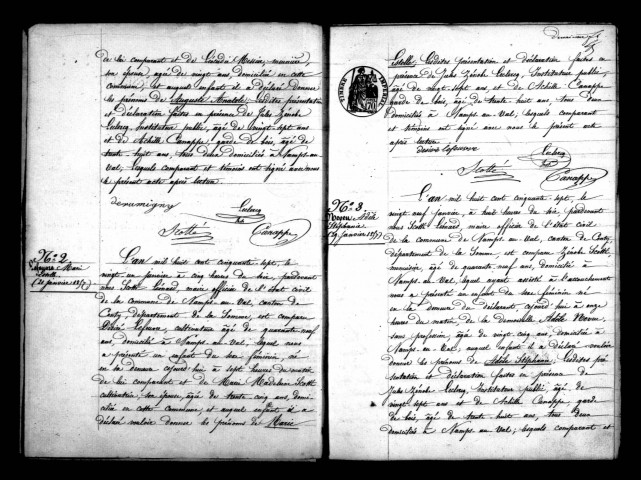 de lui comparant et de
son épouse, âgé de vingt ans, domicilié en cette
commune; et auquel enfant il a déclaré donner
les prénoms de Auguste Anatole. Lesdites présentation
et déclaration faites en présence de Jules Zénobe
Leclercq Instituteur public, âgé de vingt-sept ans
et de Achille Canappe, garde de bois, âgé de
trente huit ans, tous deux domiciliés à Namps-au-
Val, lesquels comparant et témoins ont signé avec nous
le présent acte après lecture.
derumigny Leclercq
Scotté Canappe
N° 2
Lefeuvre Marie
Estelle
(21 janvier 1857)
L'an mil huit cent cinquante sept, le
vingt un janvier à cinq heures du soir, pardevant
nous Scotté Léonard, maire officier de l'état civil
de la commune de Namps-au-Val, canton de
Conty, département de la Somme, est comparu
Désiré Lefeuvre, cultivateur âgé de quarante-neuf
ans, domicilié à Namps-au-Val, lequel nous
a présenté un enfant du sexe féminin, né
en sa demeure ce jourd'hui à sept heures du matin
de lui comparant et de Marie Madeleine Scotté
cultivatrice, son épouse, âgé de trente cinq ans, domi-
ciliée en cette commune, et auquel enfant il a
déclaré vouloir donner les prénoms de Marie
TIMBRE IMPERIAL
Estelle. Lesdites présentation et déclaration faites en
présence de Jules Zénobe Leclercq, Instituteur public,
âgé de vingt-sept ans et de Achille Canappe
garde de bois, âgé de trente huit ans, tous deux
domiciliés à Namps-au-Val, lesquels comparant
et témoins ont signé avec nous le présent acte
après lecture.
désiré lefeuvre Leclercq
Scotté Canappe
N° 3
Noyen Adèle
Stéphanie
(29 janvier 1857)
L'an mil huit cent cinquante sept, le
vingt neuf janvier, à huit heures du soir, pardevant
nous Scotté Léonard, maire officier de l'état civil
de la commune de Namps-au-Val, canton de Conty,
département de la Somme, est comparu Zénobe Scotté,
ménagère, âgé de quarante neuf ans, domicilié à
Namps-au-Val, lequel ayant assisté à l'accouchement
nous a présenté un enfant du sexe féminin né
en la demeure du déclarant, ce jourd'hui à onze
heures du matin, de la demoiselle Adèle
sans profession, âgé de vingt cinq ans, domiciliée à
Namps-au-Val, auquel enfant il a déclaré vouloir
donner les prénoms de Adèle Stéphanie. Lesdites pré-
sentation et déclaration faites en présence de
Jules Zénobe Leclercq Instituteur public, âgé de
vingt-sept ans et de Achille Canappe, garde
de bois, âgé de trente huit ans, tous deux
domiciliés à Namps-au-Val; lesquels comparant et